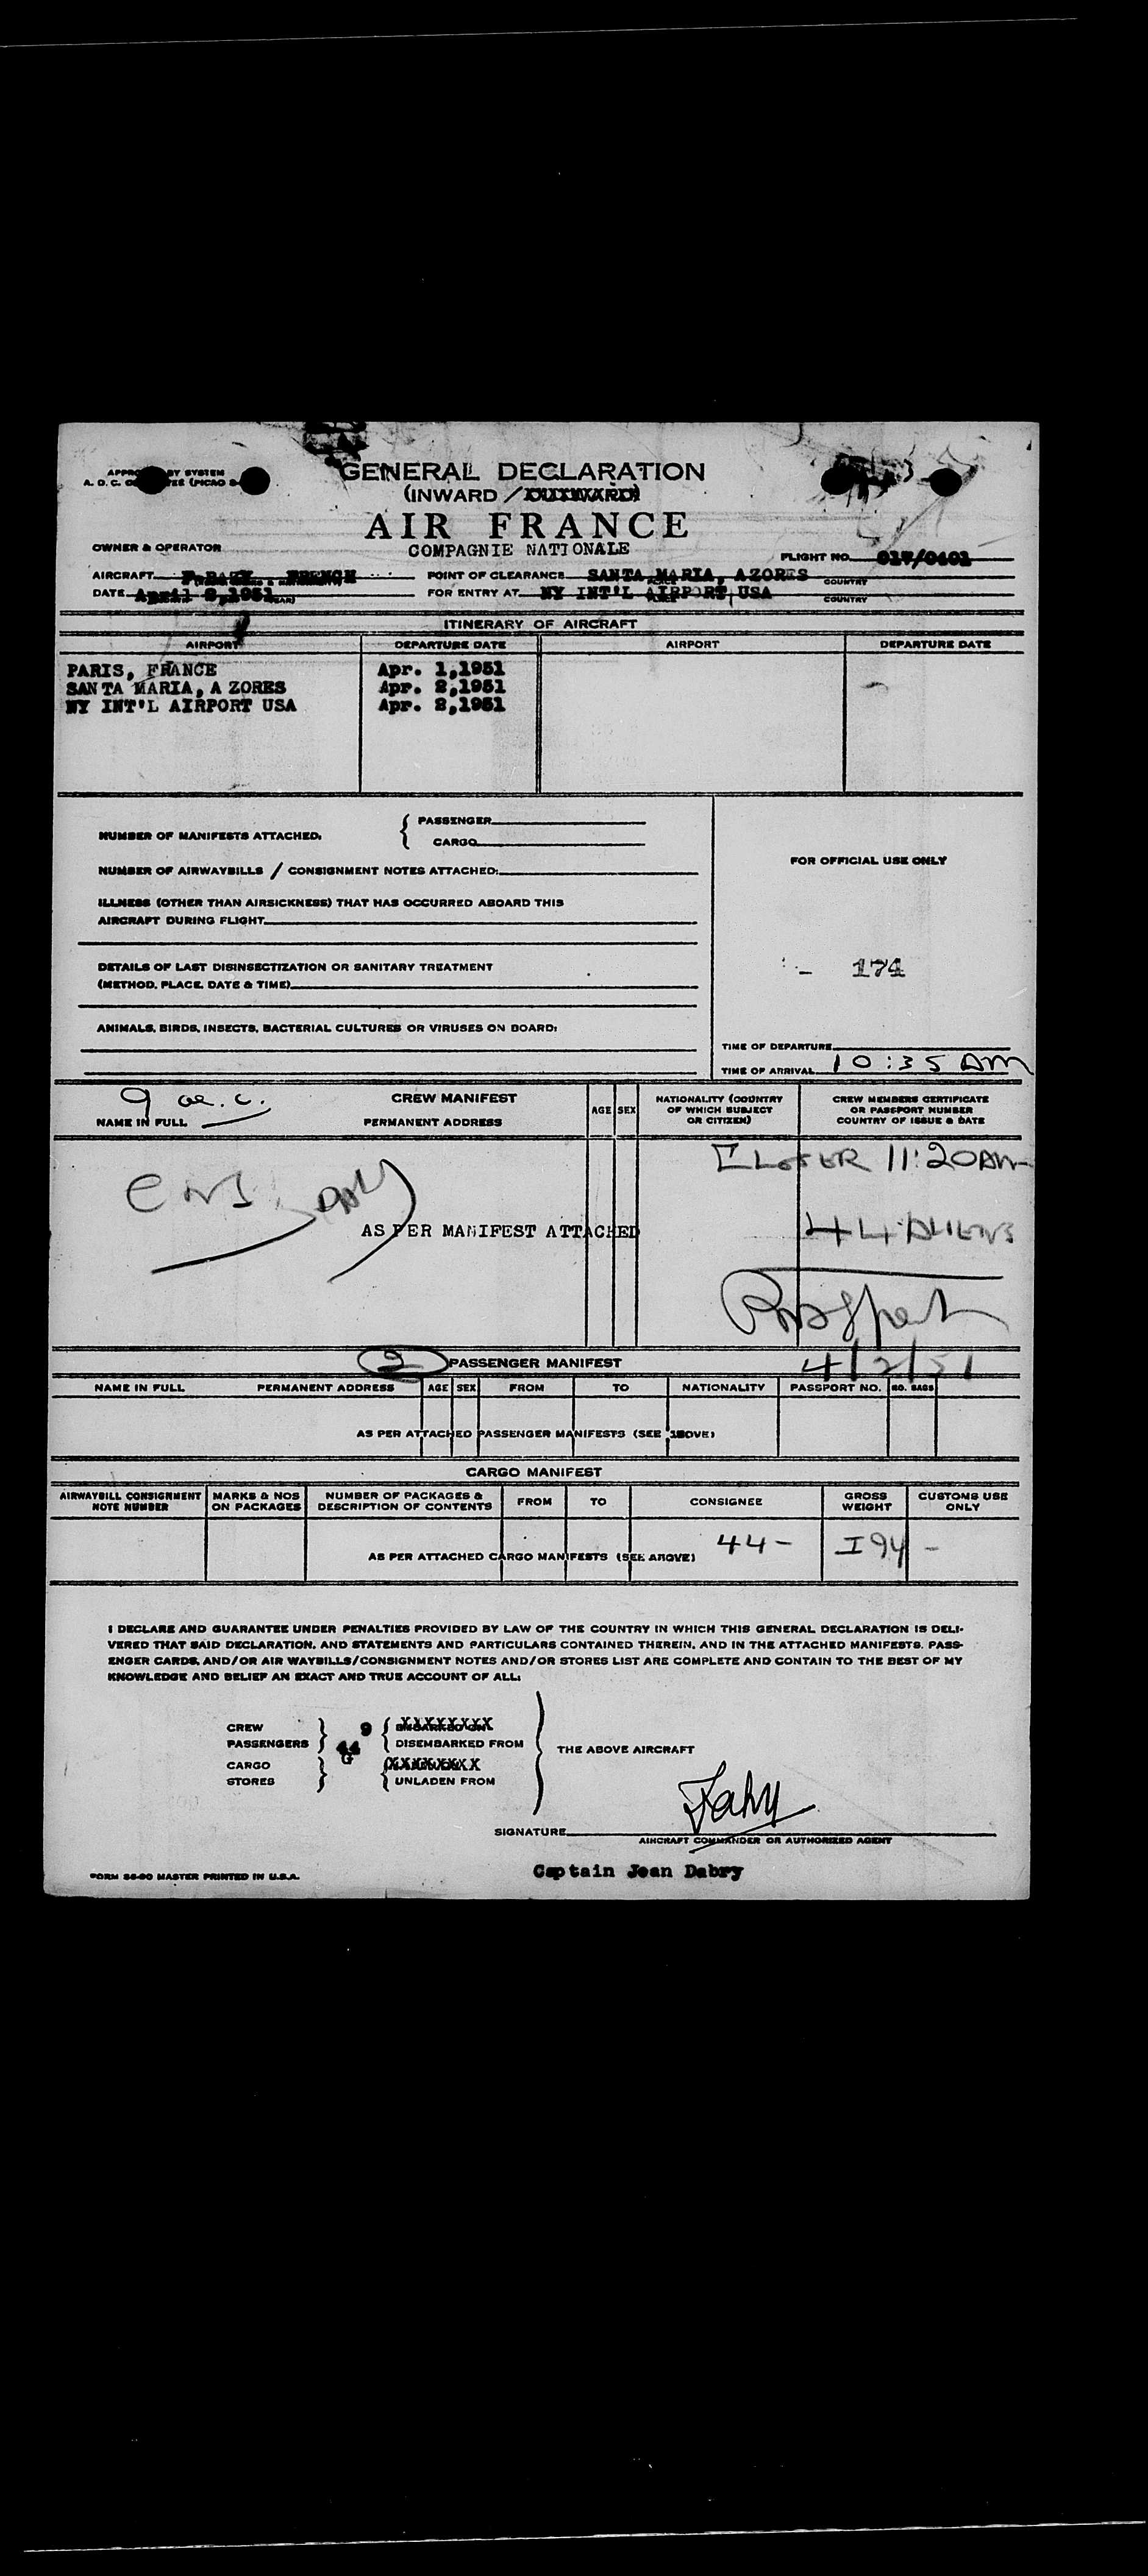 GENERAL DECLARATION
(INWARD /
AIR FRANCE
COMPAGNIE NATIONALE
OWNER & OPERATOR
FLIGHT NO. 017/0401
AIRCRAFT FRENCH POINT OF CLEARANCE SANTA MARIA, AZORES COUNTRY
DATE April 2,1951 FOR ENTRY AT NY INT'L AIRPORT, USA COUNTRY
ITINERARY OF AIRCRAFT
AIRPORT DEPARTURE DATE AIRPORT DEPARTURE DATE
PARIS, FRANCE Apr. 1,1951
SANTA MARIA, A ZORES Apr. 2,1951
NY INT'L AIRPORT USA Apr. 2,1951
NUMBER OF MANIFESTS ATTACHED. { PASSENGER
CARGO
FOR OFFICIAL USE ONLY
NUMBER OF AIRWAYBILLS / CONSIGNMENT NOTES ATTACHED:
ILLNESS (OTHER THAN AIRSICKNESS) THAT HAS OCCURRED ABOARD THIS
AIRCRAFT DURING FLIGHT
DETAILS OF LAST DISINSECTIZATION OR SANITARY TREATMENT
(METHOD, PLACE, DATE & TIME)
174
ANIMALS, BIRDS, INSECTS, BACTERIAL CULTURES OR VIRUSES ON BOARD:
TIME OF DEPARTURE
TIME OF ARRIVAL 10:35 AM
9
CREW MANIFEST
NAME IN FULL PERMANENT ADDRESS AGE SEX NATIONALITY (COUNTRY
OF WHICH SUBJECT
OR CITIZEN)
CREW MEMBERS CERTIFICATE
OR PASSPORT NUMBER
COUNTRY OF ISSUE & DATE
11:20AM
AS PER MANIFEST ATTACHED
44 ALIENS
4/2/51
2 PASSENGER MANIFEST
NAME IN FULL PERMANENT ADDRESS AGE SEX FROM TO NATIONALITY PASSPORT NO. NO. BAGS
AS PER ATTACHED PASSENGER MANIFESTS (SEE ABOVE)
CARGO MANIFEST
AIRWAYBILL CONSIGNMENT
NOTE NUMBER
MARKS & NOS
ON PACKAGES
NUMBER OF PACKAGES &
DESCRIPTION OF CONTENTS
FROM TO CONSIGNEE GROSS
WEIGHT
CUSTOMS USE
ONLY
44 - I 94 -
AS PER ATTACHED CARGO MANIFESTS (SEE ABOVE)
I DECLARE AND GUARANTEE UNDER PENALTIES PROVIDED BY LAW OF THE COUNTRY IN WHICH THIS GENERAL DECLARATION IS DELI-
VERED THAT SAID DECLARATION, AND STATEMENTS AND PARTICULARS CONTAINED THEREIN, AND IN THE ATTACHED MANIFESTS, PASS-
ENGER CARDS, AND/OR AIR WAYBILLS/CONSIGNMENT NOTES AND/OR STORES LIST ARE COMPLETE AND CONTAIN TO THE BEST OF MY
KNOWLEDGE AND BELIEF AN EXACT AND TRUE ACCOUNT OF ALL:
CREW 9
PASSENGERS 44 DISEMBARKED FROM
THE ABOVE AIRCRAFT
CARGO
STORES UNLADEN FROM
SIGNATURE
AIRCRAFT COMMANDER OR AUTHORIZED AGENT
Captain Jean Dabry
FORM 56-90 MASTER PRINTED IN U.S.A.